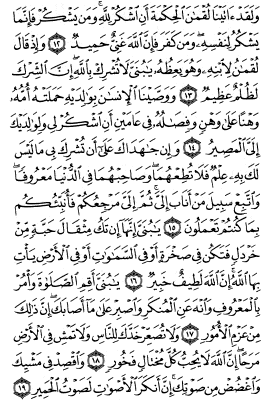 وَلَقَدْ ءَاتَيْنَا لُقْمَٰنَ ٱلْحِكْمَةَ أَنِ ٱشْكُرْ لِلَّهِ ۚ وَمَن يَشْكُرْ فَإِنَّمَا
يَشْكُرُ لِنَفْسِهِۦ ۖ وَمَن كَفَرَ فَإِنَّ ٱللَّهَ غَنِىٌّ حَمِيدٌ ﴿١٢﴾ وَإِذْ قَالَ
لُقْمَٰنُ لِٱبْنِهِۦ وَهُوَ يَعِظُهُۥ يَٰبُنَىَّ لَا تُشْرِكْ بِٱللَّهِ ۖ إِنَّ ٱلشِّرْكَ
لَظُلْمٌ عَظِيمٌ ﴿١٣﴾ وَوَصَّيْنَا ٱلْإِنسَٰنَ بِوَٰلِدَيْهِ حَمَلَتْهُ أُمُّهُۥ
وَهْنًا عَلَىٰ وَهْنٍ وَفِصَٰلُهُۥ فِى عَامَيْنِ أَنِ ٱشْكُرْ لِى وَلِوَٰلِدَيْكَ
إِلَىَّ ٱلْمَصِيرُ ﴿١٤﴾ وَإِن جَٰهَدَاكَ عَلَىٰٓ أَن تُشْرِكَ بِى مَا لَيْسَ
لَكَ بِهِۦ عِلْمٌ فَلَا تُطِعْهُمَا ۖ وَصَاحِبْهُمَا فِى ٱلدُّنْيَا مَعْرُوفًا ۖ
وَٱتَّبِعْ سَبِيلَ مَنْ أَنَابَ إِلَىَّ ۚ ثُمَّ إِلَىَّ مَرْجِعُكُمْ فَأُنَبِّئُكُم
بِمَا كُنتُمْ تَعْمَلُونَ ﴿١٥﴾ يَٰبُنَىَّ إِنَّهَآ إِن تَكُ مِثْقَالَ حَبَّةٍ مِّنْ
خَرْدَلٍ فَتَكُن فِى صَخْرَةٍ أَوْ فِى ٱلسَّمَٰوَٰتِ أَوْ فِى ٱلْأَرْضِ يَأْتِ
بِهَا ٱللَّهُ ۚ إِنَّ ٱللَّهَ لَطِيفٌ خَبِيرٌ ﴿١٦﴾ يَٰبُنَىَّ أَقِمِ ٱلصَّلَوٰةَ وَأْمُرْ
بِٱلْمَعْرُوفِ وَٱنْهَ عَنِ ٱلْمُنكَرِ وَٱصْبِرْ عَلَىٰ مَآ أَصَابَكَ ۖ إِنَّ ذَٰلِكَ
مِنْ عَزْمِ ٱلْأُمُورِ ﴿١٧﴾ وَلَا تُصَعِّرْ خَدَّكَ لِلنَّاسِ وَلَا تَمْشِ فِى ٱلْأَرْضِ
مَرَحًا ۖ إِنَّ ٱللَّهَ لَا يُحِبُّ كُلَّ مُخْتَالٍ فَخُورٍ ﴿١٨﴾ وَٱقْصِدْ فِى مَشْيِكَ
وَٱغْضُضْ مِن صَوْتِكَ ۚ إِنَّ أَنكَرَ ٱلْأَصْوَٰتِ لَصَوْتُ ٱلْحَمِيرِ ﴿١٩﴾